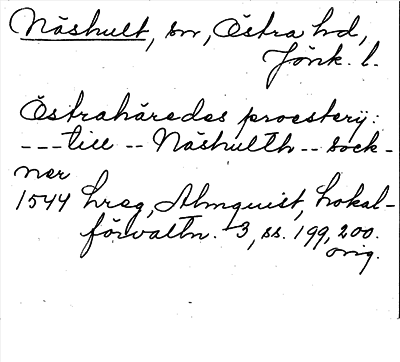 Näshult, sn, Östra hd,
Jönk. l.
Östrahäredes proesterij:
---till -- Näshulth -- sock-
ner
1544 hreg, Almquist, Lokal-
förvaltn. 3, ss. 199, 200.
orig.